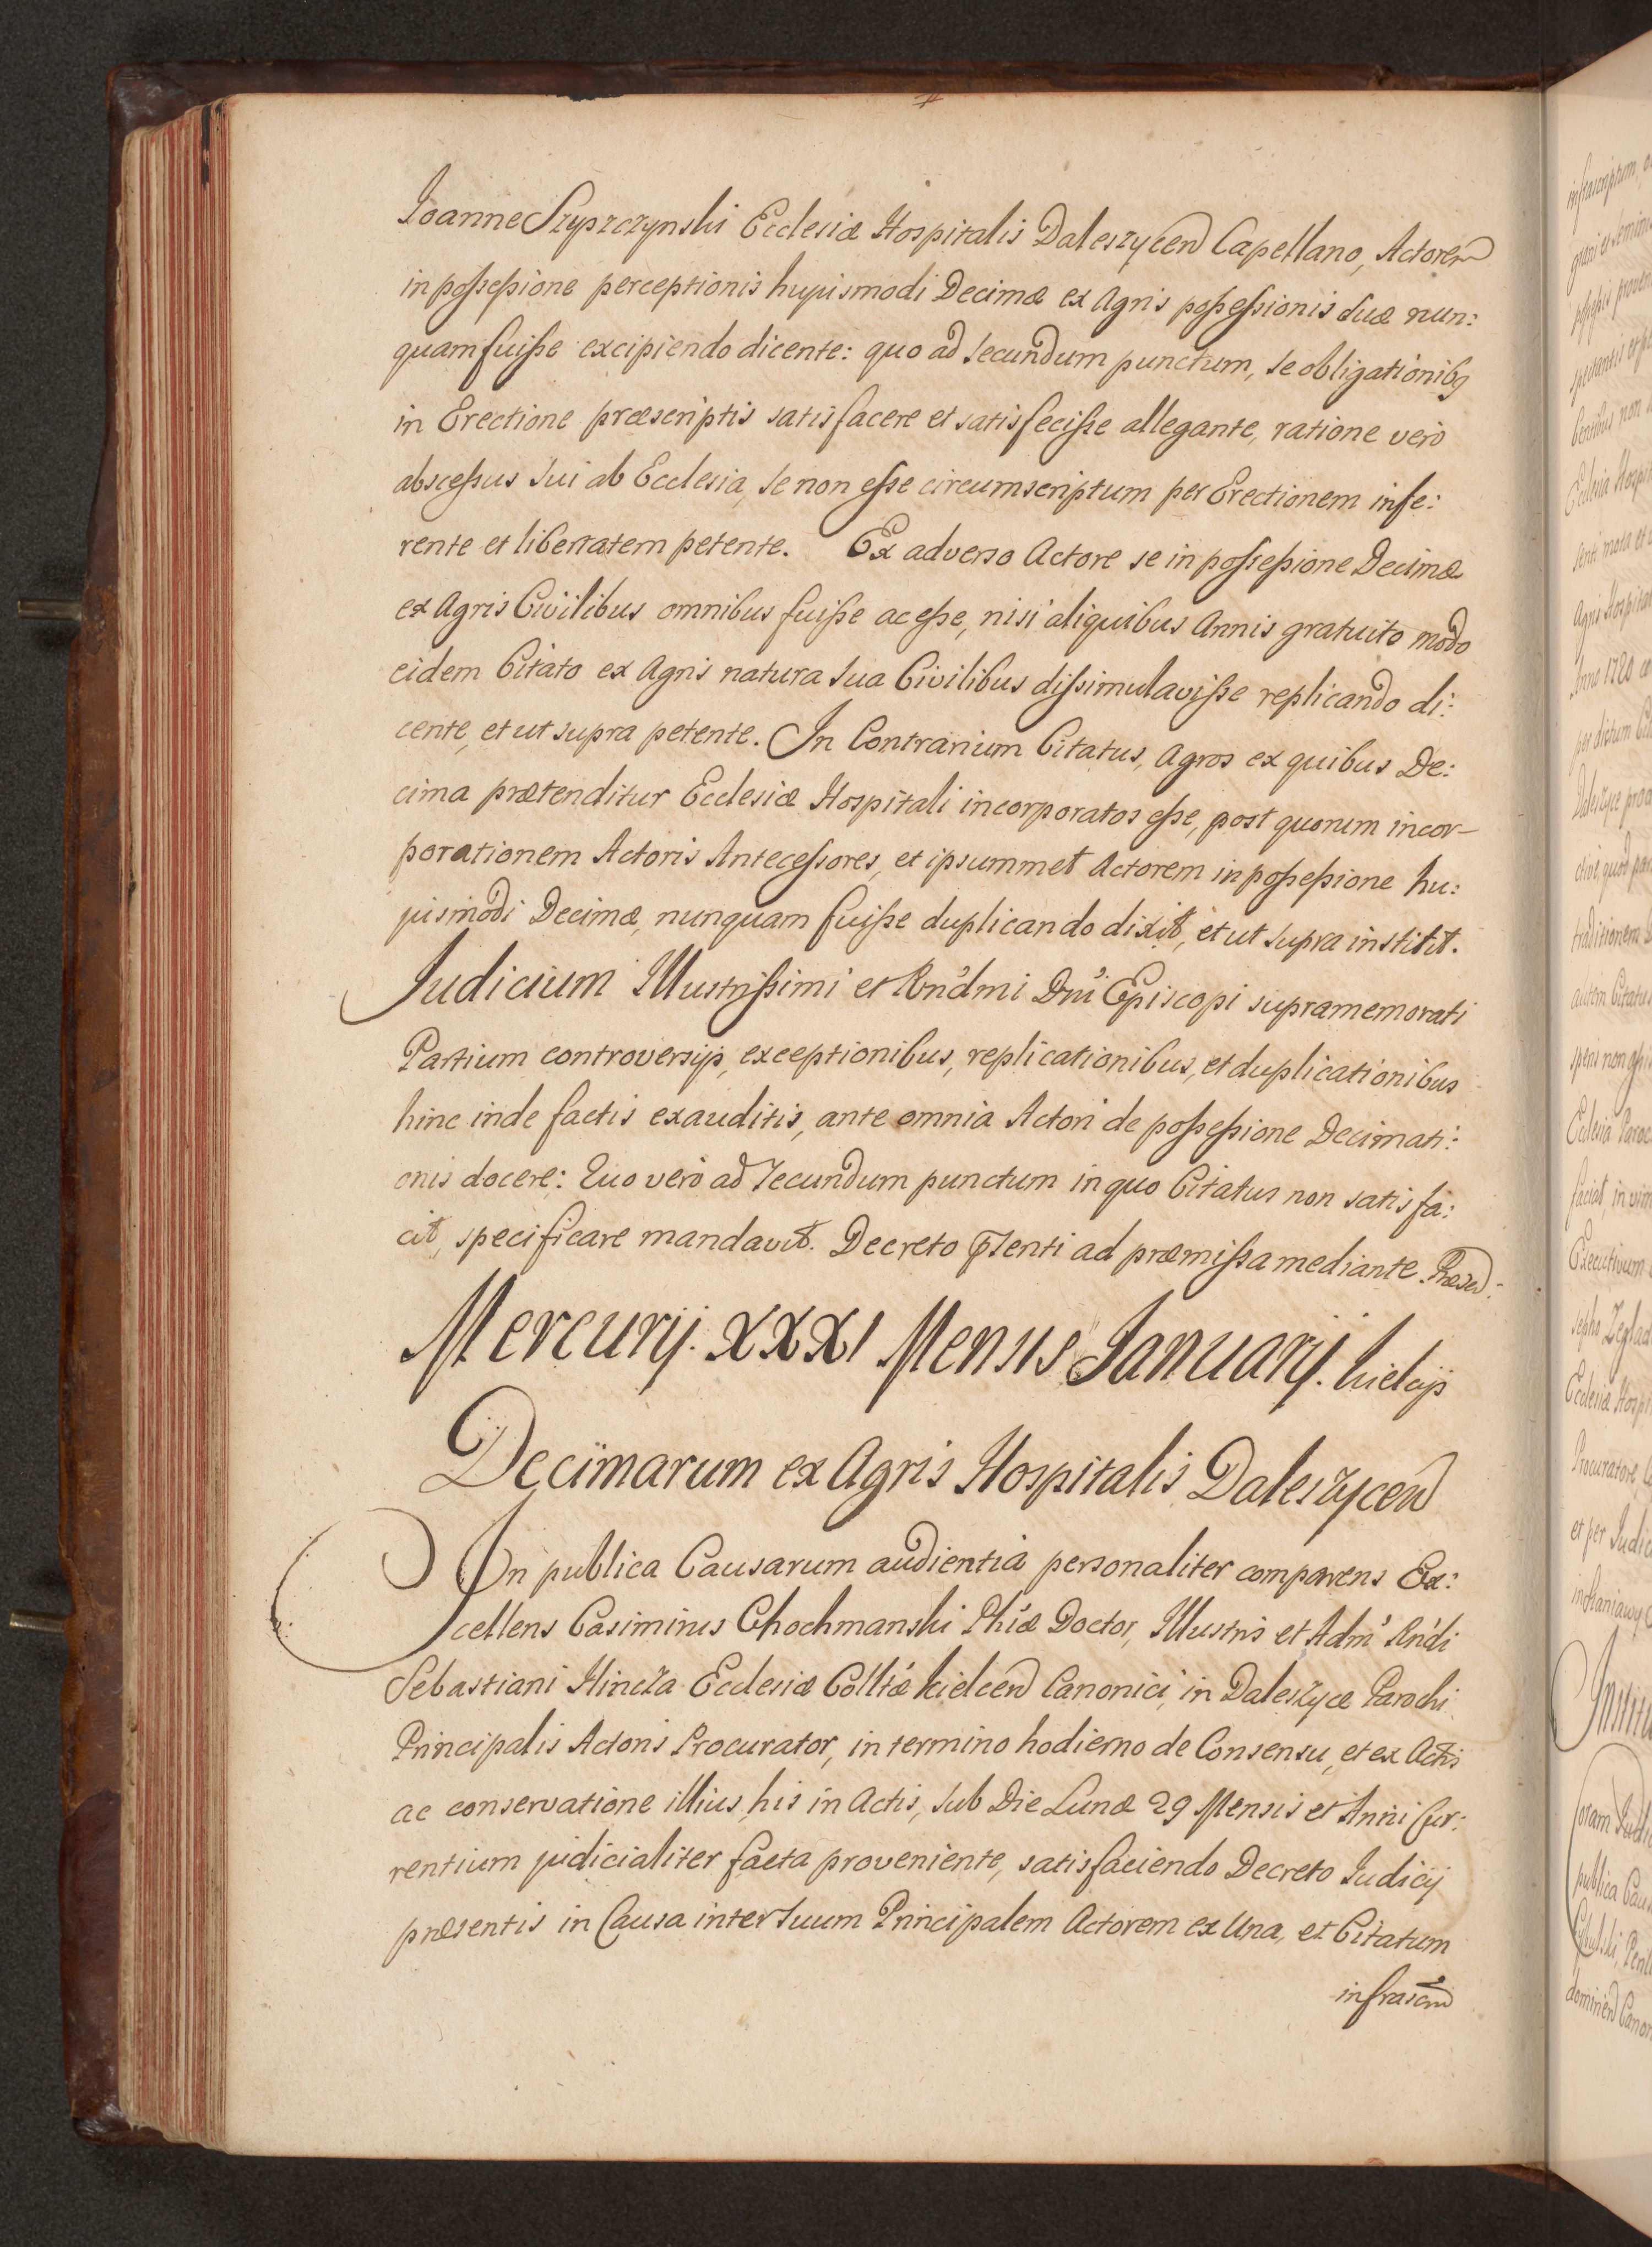 Joanne Szypszczynski Ecclesiæ Hospitalis Daleszycen Capellano, Actorem
in possessione perceptionis hujusmodi Decimæ ex Agris possessionis suæ nun:
quam fuisse excipiendo dicente: quo ad secundum punctum, se obligationibq
in Erectione præscriptis satisfacere et satisfecisse allegante, ratione vero
abscessus sui ab Ecclesia, se non esse circumscriptum per Erectionem infe:
rente et libertatem petente. Ex adverso Actore se in possessione Decimæ
ex Agris Civilibus omnibus fuisse ac esse, nisi aliquibus Annis gratuito modo
eidem Citato ex Agris natura sua Civilibus dissimulavisse replicando di:
cente, et ut supra petente. In Contrarium Citatus, Agros ex quibus De:
cima prætenditur Ecclesiæ Hospitali incorporatos esse, post quorum incor-
porationem Actoris Antecessores, et ipsummet Actorem in possessione hu:
jusmodi Decimæ, nunquam fuisse duplicando dixit, et ut supra institit.
Judicium Illustrissimi et Rndmi Dni Episcopi supramemorati
Partium controversijs, exceptionibus, replicationibus, et duplicationibus
hinc inde factis exauditis, ante omnia Actori de possessione Decimati:
onis docere: Quo vero ad Secundum punctum in quo Citatus non satisfa:
cit, specificare mandavit. Decreto pſenti ad præmissa mediante. Præsen:
Mercurij. XXXI Mensis Januarij. Kielcijs
Decimarum ex Agris Hospitalis Daleszycen
In publica Causarum audientia personaliter comparens Ex:
cellens Casimirus Chochmanski Phiæ Doctor, Illustris et Adm Rndi
Sebastiani Hincza Ecclesiæ Colltæ Kielcen Canonici, in Daleszyce Parochi
Principalis Actoris Procurator, in termino hodierno de Consensu, et ex Actis
ac conservatione illius, his in Actis, sub Die Lunæ 29 Mensis et Anni cur:
rentium judicialiter facta proveniente, satisfaciendo Decreto Judicij
præsentis in Causa inter suum Principalem Actorem ex Una, et Citatum
infrascrm